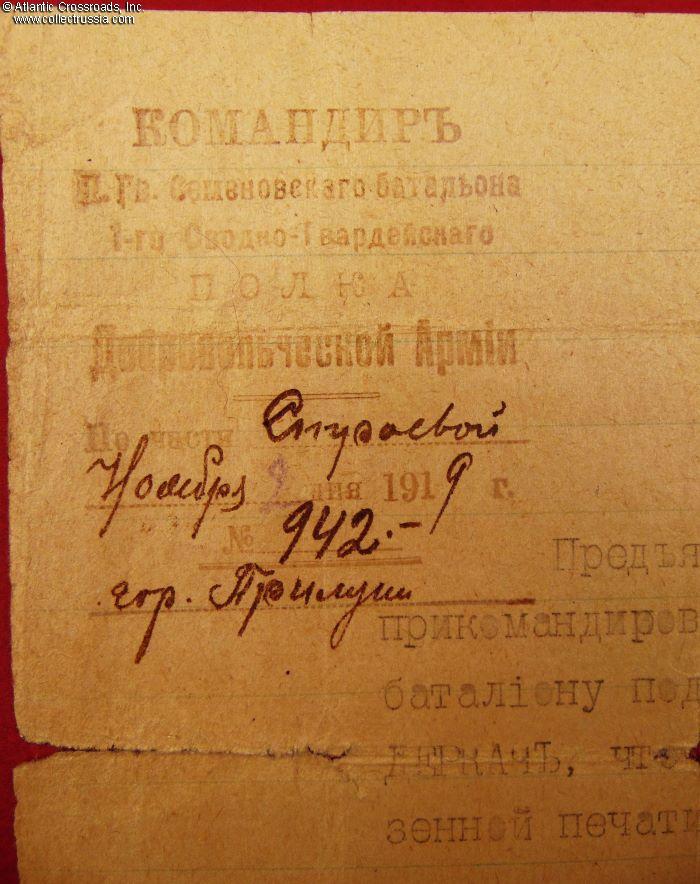 © Atlantic Crossroads, Inc.
www.collectrussia.com
КОМАНДИРЪ
Л. Гв. Семеновскаго батальона
1-го Сводно-Гвардейскаго
ПОЛКА
Добровольческой Армiи
По части Строевой
Ноября 2 дня 1919 г.
№ 942.-
гор. Прилуки
Предъя
прикомандиров
баталiону под
ДЕРКАЧЪ, что
зенной печати